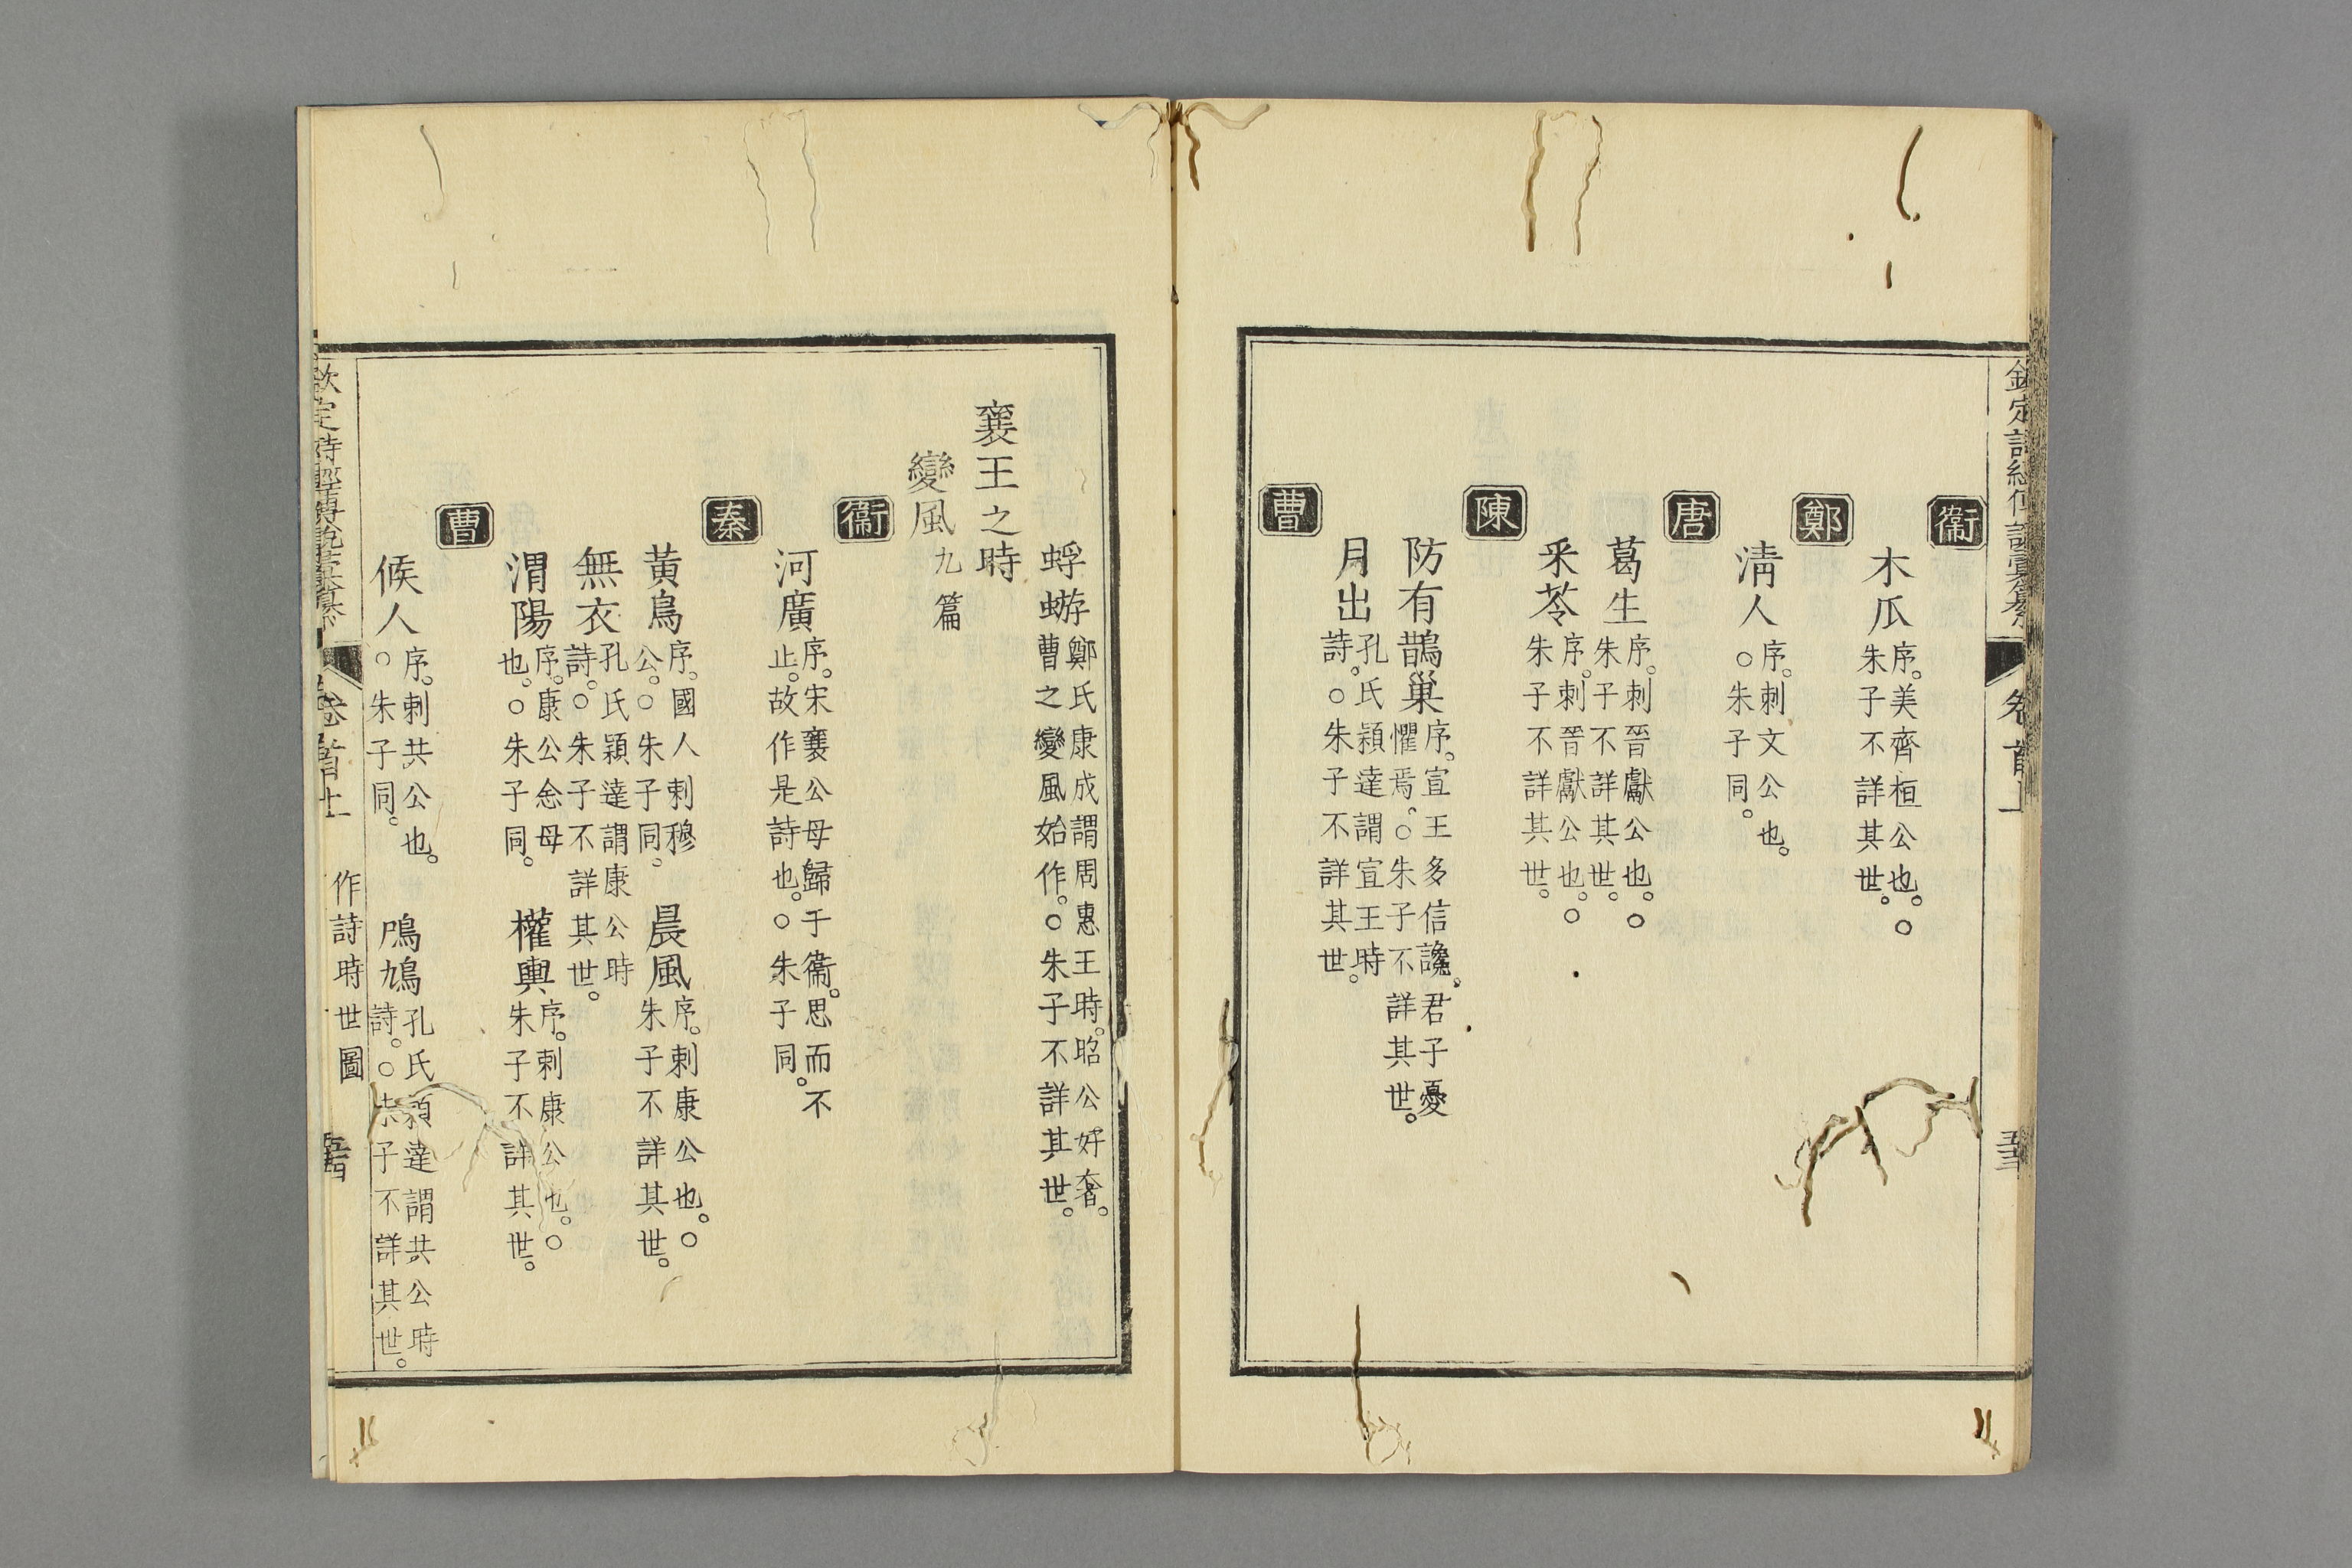 衞
木瓜序。美齊桓公也。○朱子不詳其世。
鄭
淸人序。刺文公也。○朱子同。
唐
葛生序。刺晉獻公也。○朱子不詳其世。
采苓序。刺晉獻公也。○朱子不詳其世。
陳
防有鵲巢序。宣王多信讒。君子憂懼焉。○朱子不詳其世。
月出孔氏穎達謂宣王時詩。○朱子不詳其世。
曹
蜉蝣鄭氏康成謂周惠王時。昭公好奢。曹之變風始作。○朱子不詳其世。
襄王之時
變風九篇
衞
河廣序。宋襄公母歸于衞。思而不止。故作是詩也。○朱子同。
秦
黃鳥序。國人刺穆公。○朱子同。 晨風序。刺康公也。○朱子不詳其世。
無衣孔氏穎達謂康公時詩。○朱子不詳其世。
渭陽序。康公念母也。○朱子同。 權輿序。刺康公也。○朱子不詳其世。
曹
候人序。刺共公也。○朱子同。 鳲鳩孔氏穎達謂共公時詩。○朱子不詳其世。
欽定詩經傳說彙纂 卷首上 作詩時世圖